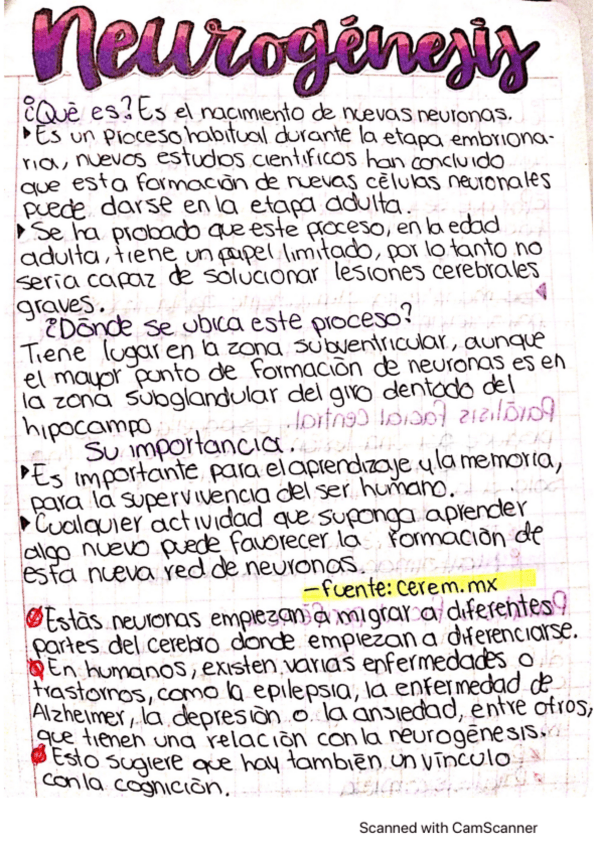 Neurogénesis
¿Què es? Es el nacimiento de nuevas neuronas.
▸Es un proceso habitual durante la etapa embriona-
ria, nuevos estudios científicos han concluido
que esta formaciòn de nuevas cèlulas neuronales
puede darse en la etapa adulta.
▸Se ha probado que este proceso, en la edad
adulta, tiene un papel limitado, por lo tanto no
seria capaz de solucionar lesiones cerebrales
graves.
¿Dònde se ubica este proceso?
Tiene lugar en la zona subventricular, aunque
el mayor punto de formaciòn de neuronas es en
la zona subglandular del giro dentado del
hipocampo
Paràlisis Facial central.
Su importancia.
▸Es importante para el aprendizaje y la memoria,
para la supervivencia del ser humano.
▸Cualquier actividad que suponga aprender
algo nuevo puede favorecer la formaciòn de
esta nueva red de neuronas.
-fuente: cerem.mx
Estàs neuronas empiezan a migrar a diferentes
partes del cerebro donde empiezan a diferenciarse.
En humanos, existen varias enfermedades o
trastornos, como la epilepsia, la enfermedad de
Alzheimer, la depresiòn o la ansiedad, entre otros,
que tienen una relaciòn con la neurogènesis.
Esto sugiere que hay tambièn un vìnculo
con la cogniciòn.
Scanned with CamScanner